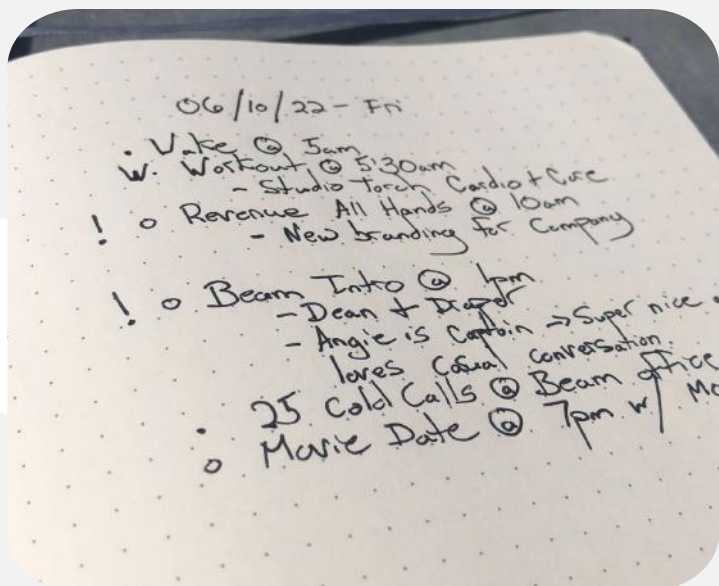 06/10/22 - Fri
. Wake @ 5am
W. Workout @ 5:30am
- Studio Torch Cardio + Core
! o Revenue All Hands @ 10am
- New branding for Company
! o Beam Intro @ 1pm
- Dean + Draper
- Angie is Captain → Super nice
loves casual conversation
. 25 Cold Calls @ Beam office
o Movie Date @ 7pm w/